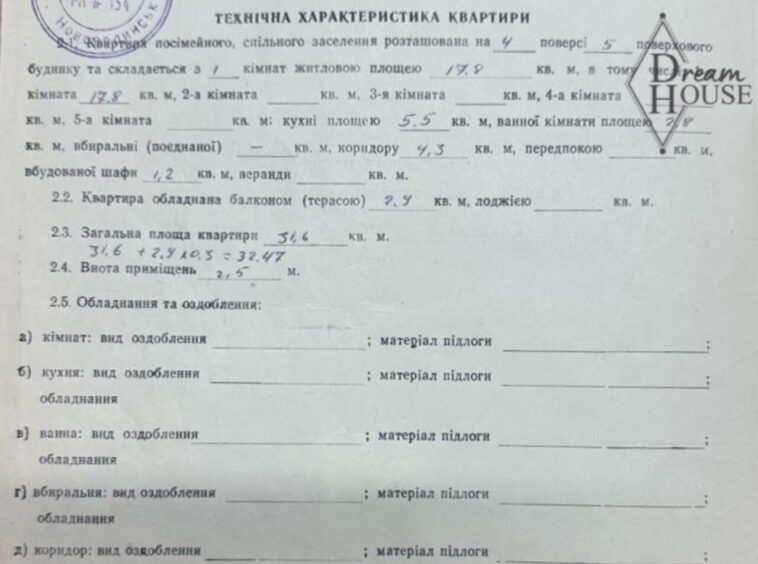 РП № 194
Новоодинськ
ТЕХНІЧНА ХАРАКТЕРИСТИКА КВАРТИРИ
2.1. Квартира посімейного, спільного заселення розташована на 4 поверсі 5 поверхового
будинку та складається з 1 кімнат житловою площею 17,8 кв. м, в тому числі
кімната 17,8 кв. м, 2-а кімната кв. м, 3-я кімната кв. м, 4-а кімната
кв. м, 5-а кімната кв. м: кухні площею 5,5 кв. м, ванної кімнати площею 2,8
кв. м, вбиральні (поєднаної) — кв. м, коридору 4,3 кв. м, передпокою кв. м,
вбудованої шафи 1,2 кв. м, веранди кв. м.
2.2. Квартира обладнана балконом (терасою) 2,9 кв. м, лоджією кв. м.
2.3. Загальна площа квартири 31,6 кв. м.
31,6 + 2,9 x 0,3 = 32.47
2.4. Висота приміщень 2,5 м.
2.5. Обладнання та оздоблення:
а) кімнат: вид оздоблення ; матеріал підлоги ;
б) кухня: вид оздоблення ; матеріал підлоги ;
обладнання
в) ванна: вид оздоблення ; матеріал підлоги ;
обладнання
г) вбиральня: вид оздоблення ; матеріал підлоги ;
обладнання
д) коридор: вид оздоблення ; матеріал підлоги ;
Dream
HOUSE